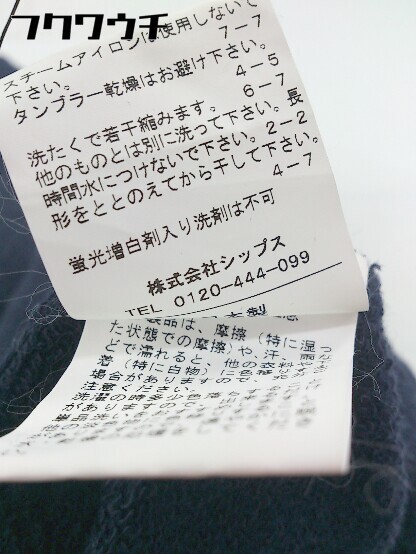 フクワウチ
スチームアイロンは使用しないで
下さい。 7-7
タンブラー乾燥はお避け下さい。
4-5
洗たくで若干縮みます。 6-7
他のものとは別に洗って下さい。長
時間水につけないで下さい。2-2
形をととのえてから干して下さい。
4-7
蛍光増白剤入り洗剤は不可
株式会社シップス
TEL 0120-444-099
製品は、摩擦（特に湿っ
た状態での摩擦）や、汗、雨な
どで濡れると、他の衣料やお
着（特に白物）に色移りする
場合がありますので、充分ご
注意ください。
洗濯の時多少色落ち
がありますので